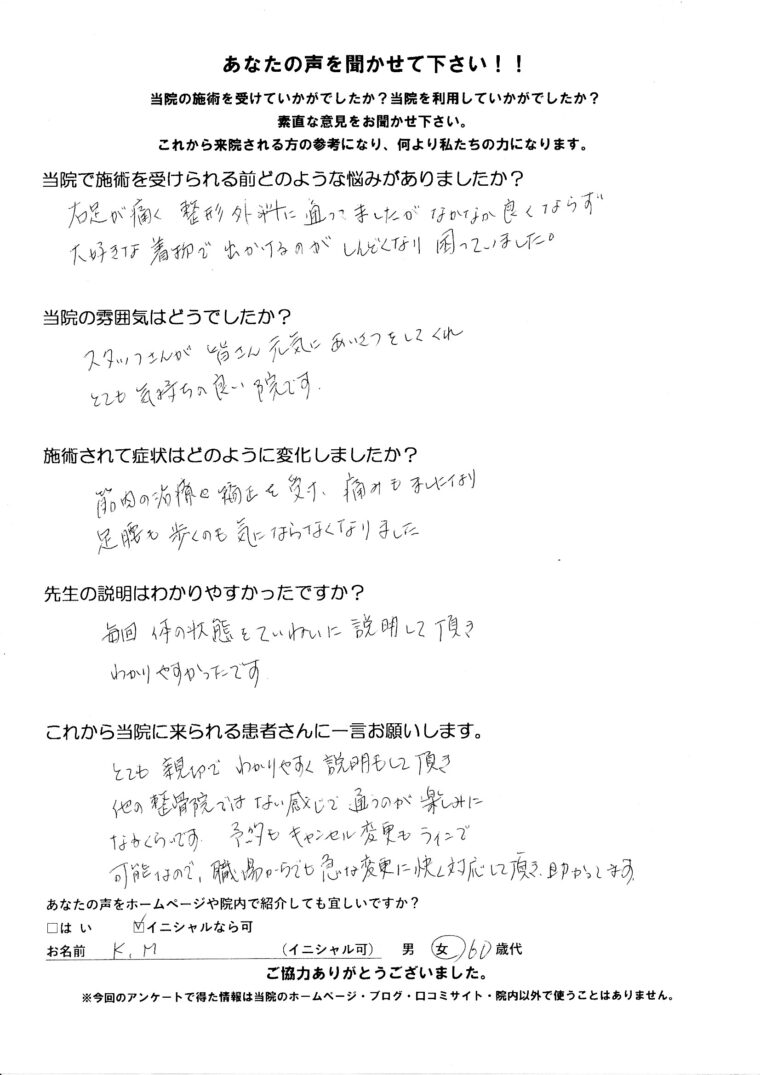 あなたの声を聞かせて下さい！！
当院の施術を受けていかがでしたか？当院を利用していかがでしたか？
素直な意見をお聞かせ下さい。
これから来院される方の参考になり、何より私たちの力になります。
当院で施術を受けられる前どのような悩みがありましたか？
右足が痛く 整形外科に通ってましたが なかなか良くならず
大好きな着物で出かけるのが しんどくなり 困っていました。
当院の雰囲気はどうでしたか？
スタッフさんが 皆さん元気に あいさつをしてくれ
とても気持ちの良い院です.
施術されて症状はどのように変化しましたか？
筋肉の治療と矯正を受け、痛みもましになり
足腰も歩くのも気にならなくなりました
先生の説明はわかりやすかったですか？
毎回 体の状態をていねいに説明して頂き
わかりやすかったです
これから当院に来られる患者さんに一言お願いします。
とても親切で わかりやすく説明もして頂き
他の整骨院ではない感じで 通うのが楽しみに
なるくらいです 予約もキャンセル変更もラインで
可能なので、職場からでも急な変更に快く対応して頂き、助かってます
あなたの声をホームページや院内で紹介しても宜しいですか？
□はい ☑イニシャルなら可
お名前 K.M （イニシャル可） 男 女 60歳代
ご協力ありがとうございました。
※今回のアンケートで得た情報は当院のホームページ・ブログ・口コミサイト・院内以外で使うことはありません。